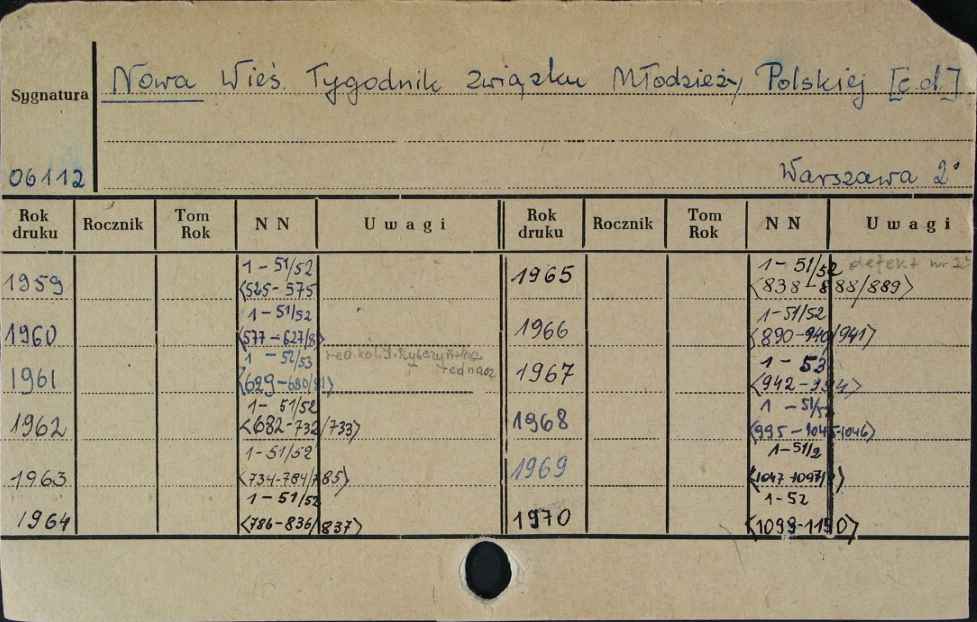 Nowa Wieś. Tygodnik Związku Młodzieży Polskiej [c.d.]
Sygnatura
06112
Warszawa 2°
Rok druku Rocznik Tom Rok N N Uwagi Rok druku Rocznik Tom Rok N N Uwagi
1959 1-51/52 <525-575
1960 1-51/52 <577-627/8>
1961 1-52/53 <629-680/81>
1962 1-51/52 <682-732/733>
1963 1-51/52 <734-784/785>
1964 1-51/52 <786-836/837>
1965 1-51/52 <838-888/889> defekt nr
1966 1-51/52 <890-940/941>
1967 1-53 <942-994>
1968 1-51/52 <995-1045-1046>
1969 1-51/2 <1047-1097/8>
1970 1-52 <1099-1150>